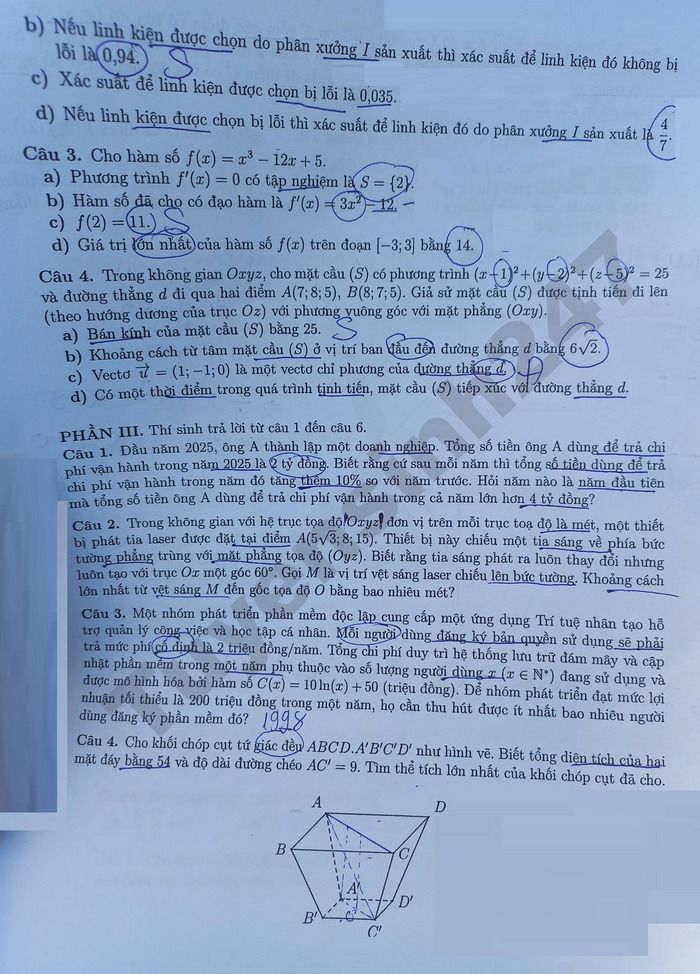 b) Nếu linh kiện được chọn do phân xưởng I sản xuất thì xác suất để linh kiện đó không bị
lỗi là 0,94. S
c) Xác suất để linh kiện được chọn bị lỗi là 0,035.
d) Nếu linh kiện được chọn bị lỗi thì xác suất để linh kiện đó do phân xưởng I sản xuất là 4/7.
Câu 3. Cho hàm số f(x) = x³ − 12x + 5.
a) Phương trình f′(x) = 0 có tập nghiệm là S = {2}.
b) Hàm số đã cho có đạo hàm là f′(x) = 3x² − 12.
c) f(2) = 11. S
d) Giá trị lớn nhất của hàm số f(x) trên đoạn [−3; 3] bằng 14.
Câu 4. Trong không gian Oxyz, cho mặt cầu (S) có phương trình (x−1)²+(y−2)²+(z−5)² = 25
và đường thẳng d đi qua hai điểm A(7; 8; 5), B(8; 7; 5). Giả sử mặt cầu (S) được tịnh tiến đi lên
(theo hướng dương của trục Oz) với phương vuông góc với mặt phẳng (Oxy).
a) Bán kính của mặt cầu (S) bằng 25. S
b) Khoảng cách từ tâm mặt cầu (S) ở vị trí ban đầu đến đường thẳng d bằng 6√2.
c) Vectơ u⃗ = (1; −1; 0) là một vectơ chỉ phương của đường thẳng d.
d) Có một thời điểm trong quá trình tịnh tiến, mặt cầu (S) tiếp xúc với đường thẳng d.
PHẦN III. Thí sinh trả lời từ câu 1 đến câu 6.
Câu 1. Đầu năm 2025, ông A thành lập một doanh nghiệp. Tổng số tiền ông A dùng để trả chi
phí vận hành trong năm 2025 là 2 tỷ đồng. Biết rằng cứ sau mỗi năm thì tổng số tiền dùng để trả
chi phí vận hành trong năm đó tăng thêm 10% so với năm trước. Hỏi năm nào là năm đầu tiên
mà tổng số tiền ông A dùng để trả chi phí vận hành trong cả năm lớn hơn 4 tỷ đồng?
Câu 2. Trong không gian với hệ trục tọa độ Oxyz, đơn vị trên mỗi trục toạ độ là mét, một thiết
bị phát tia laser được đặt tại điểm A(5√3; 8; 15). Thiết bị này chiếu một tia sáng về phía bức
tường phẳng trùng với mặt phẳng tọa độ (Oyz). Biết rằng tia sáng phát ra luôn thay đổi nhưng
luôn tạo với trục Ox một góc 60°. Gọi M là vị trí vệt sáng laser chiếu lên bức tường. Khoảng cách
lớn nhất từ vệt sáng M đến gốc tọa độ O bằng bao nhiêu mét?
Câu 3. Một nhóm phát triển phần mềm độc lập cung cấp một ứng dụng Trí tuệ nhân tạo hỗ
trợ quản lý công việc và học tập cá nhân. Mỗi người dùng đăng ký bản quyền sử dụng sẽ phải
trả mức phí cố định là 2 triệu đồng/năm. Tổng chi phí duy trì hệ thống lưu trữ đám mây và cập
nhật phần mềm trong một năm phụ thuộc vào số lượng người dùng x (x ∈ ℕ*) đang sử dụng và
được mô hình hóa bởi hàm số C(x) = 10 ln(x) + 50 (triệu đồng). Để nhóm phát triển đạt mức lợi
nhuận tối thiểu là 200 triệu đồng trong một năm, họ cần thu hút được ít nhất bao nhiêu người
dùng đăng ký phần mềm đó? 1998
Câu 4. Cho khối chóp cụt tứ giác đều ABCD.A′B′C′D′ như hình vẽ. Biết tổng diện tích của hai
mặt đáy bằng 54 và độ dài đường chéo AC′ = 9. Tìm thể tích lớn nhất của khối chóp cụt đã cho.
A D
B C
A′ D′
B′ C′
Tuyensinh247